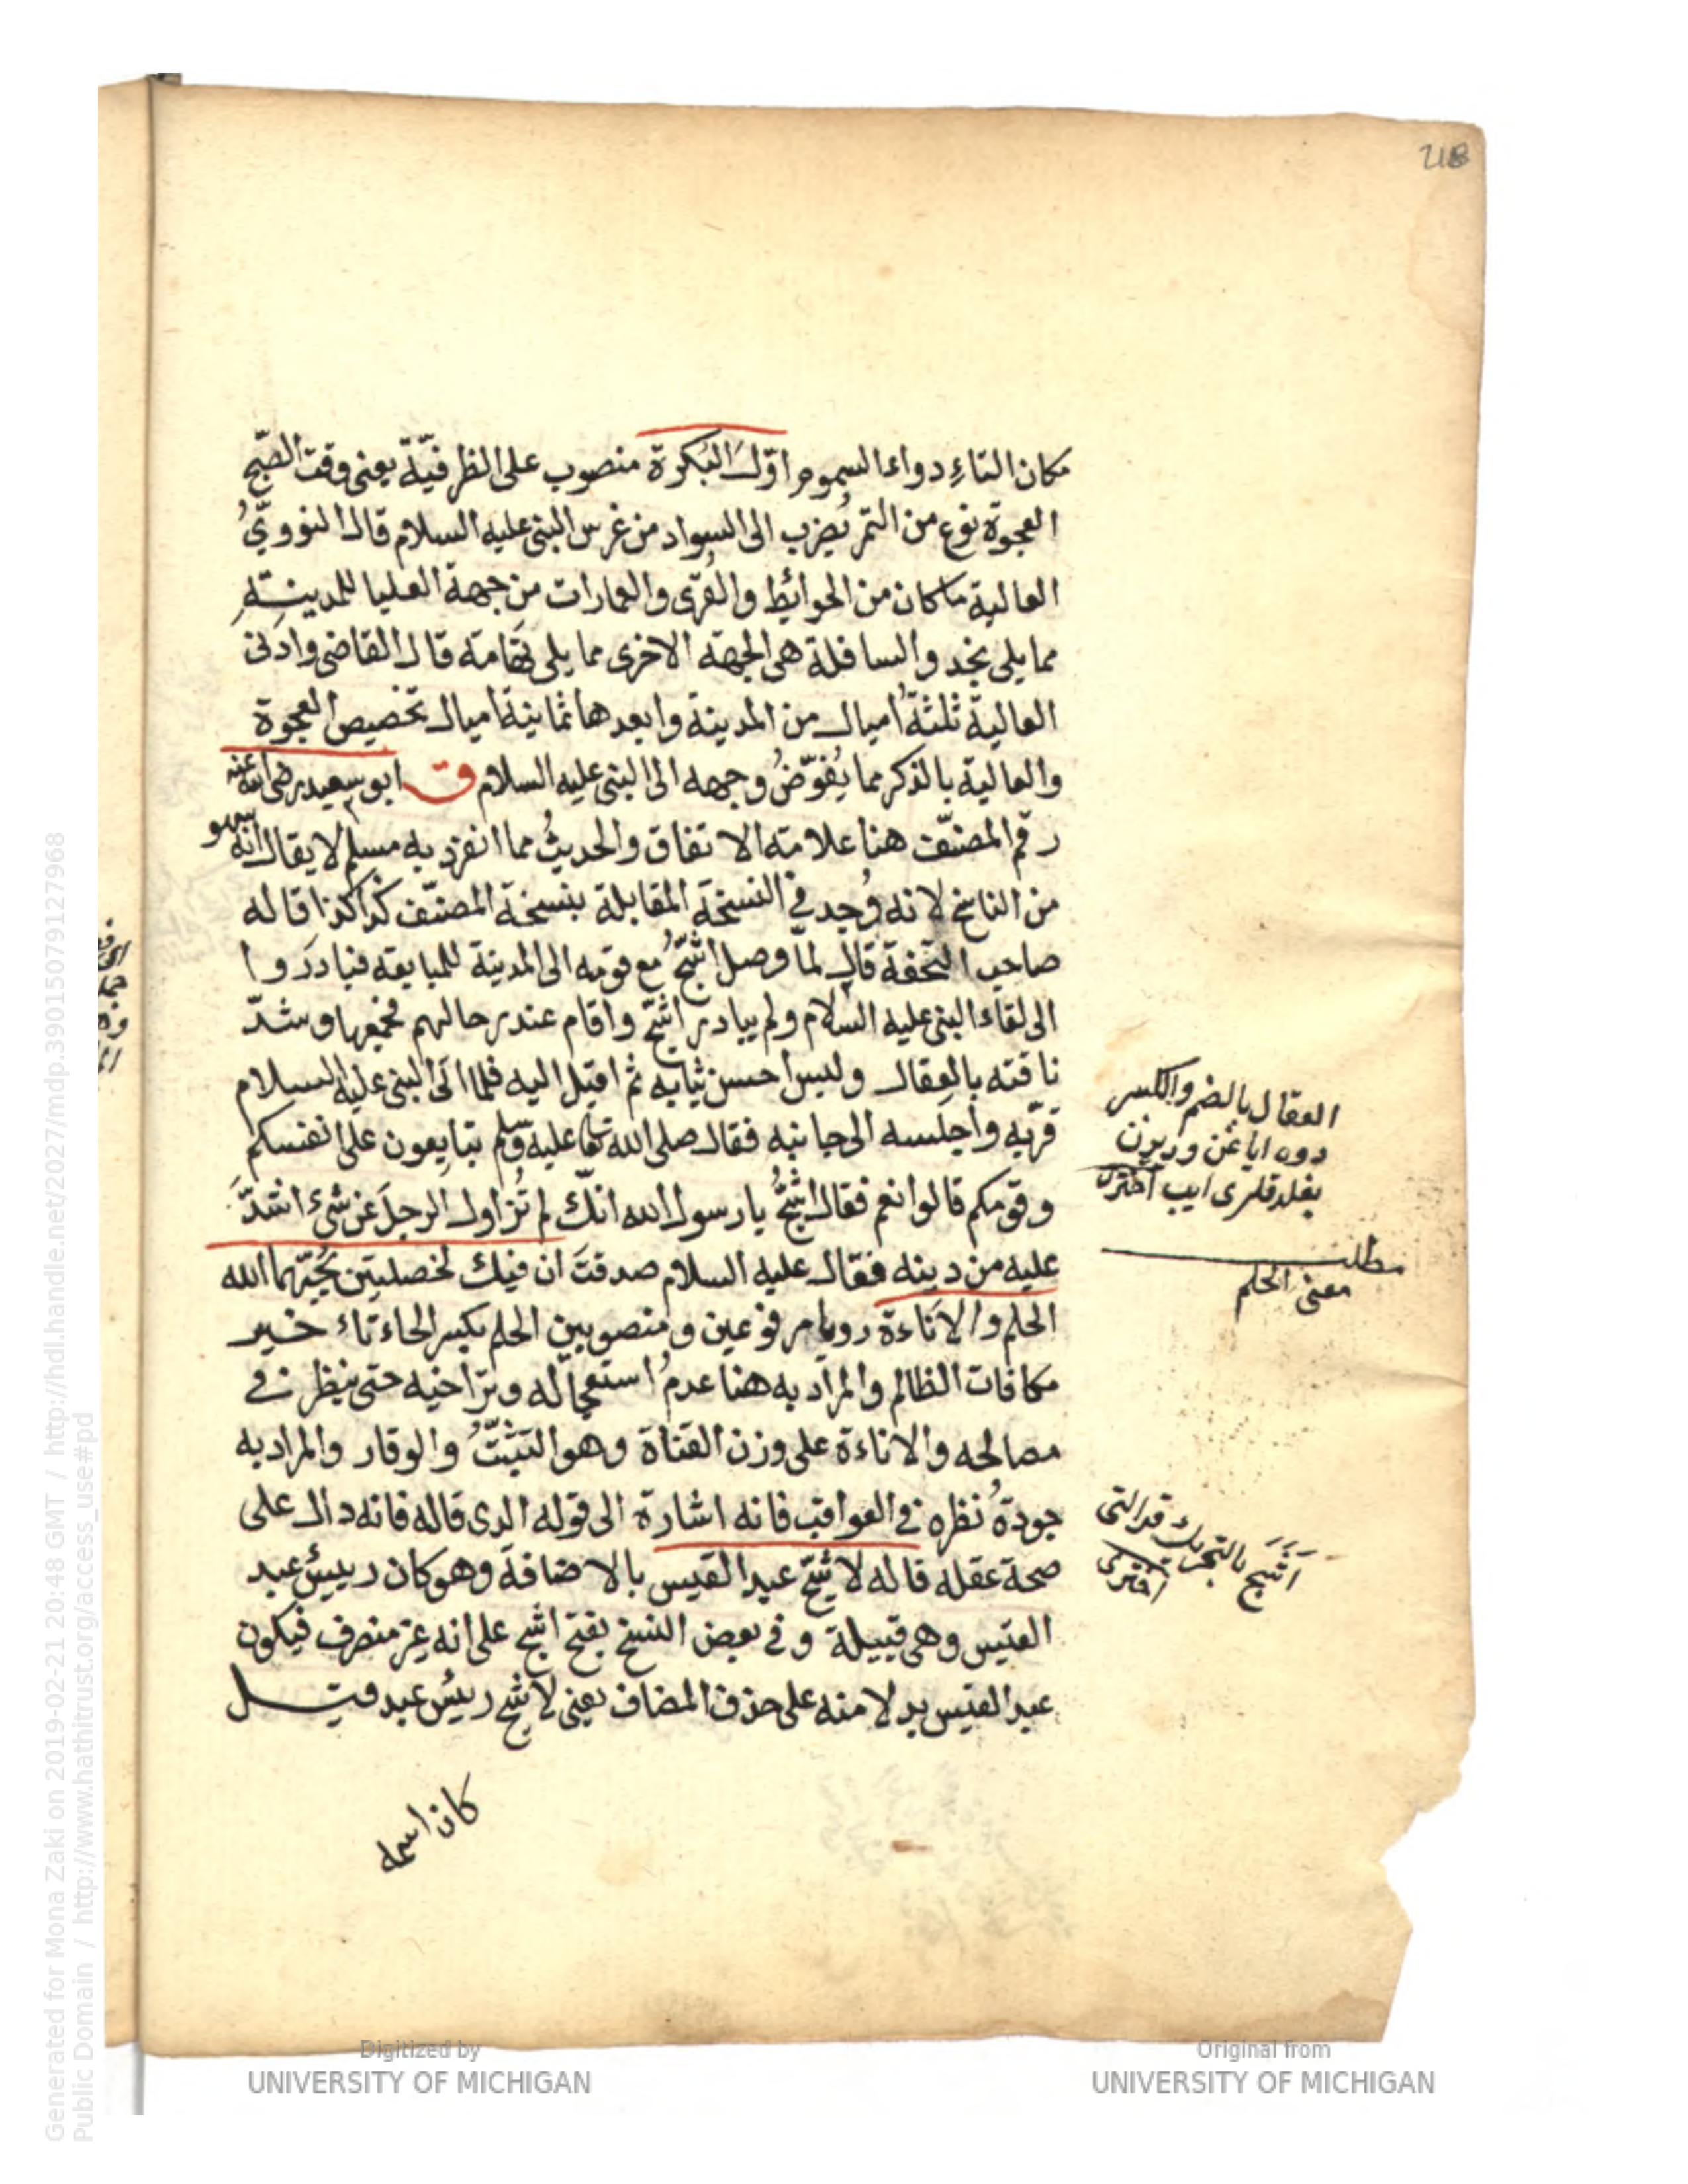 218
مكان التاءِ دواء السموم اوّلَ البُكرة منصوب على الظرفيّة يعنى وقت الصّبح
العجوة نوع من التمر يُضرب الى السواد من غرس النبى عليه السلام قال النوويُّ
العالية ما كان من الحوائط والقرى والعمارات من جهة العليا للمدينة
مما يلى نجد والسافلة هى الجهة الاخرى مما يلى تهامة قال القاضى وادنى
العالية ثلثةُ اميال من المدينة وابعدها ثمانية اميال تخصيص العجوة
والعالية بالذكر مما يُفوّضُ وجهه الى النبى عليه السلام ق ابو سعيد رضى الله عنه
رقم المصنّف هنا علامة الاتفاق والحديثُ مما انفرد به مسلم لا يقال انه سهو
من الناسخ لانه وُجد فى النسخة المقابلة بنسخة المصنّف كذا كذا قاله
صاحب التحفة قال لمّا وصل اشجّ مع قومه الى المدينة للمبايعة فبادروا
الى لقاء النبى عليه السلام ولم يبادر اشجّ واقام عند رحالهم فجمعها وشدّ
ناقته بالعِقال ولبس احسن ثيابه ثم اقبل اليه فلما اتى النبى عليه السلام
قرّبه واجلسه الى جانبه فقال صلى الله تعا عليه وسلم تبايعون على انفسكم
وقومكم قالوا نعم فقال اشجُّ يا رسول الله انّك لم تُزاول الرجلَ عن شىء اشدَّ
عليه من دينه فقال عليه السلام صدقتَ ان فيك لخصلتين يُحبّهما الله
الحلم والاناءة رويا مرفوعين ومنصوبين الحلم بكسر الحاء تاء خير
مكافات الظالم والمراد به هنا عدمُ استعجاله وتراخيه حتى ينظر فى
مصالحه والاناءة على وزن القناة وهو التثبّتُ والوقار والمراد به
جودةُ نظره فى العواقب فانه اشارة الى قوله الذى قاله فانه دال على
صحة عقله قاله لاشجّ عبد القيس بالاضافة وهو كان رييسُ عبد
القيس وهى قبيلة وفى بعض النسخ بفتح اشج على انه غير منصرف فيكون
عبد القيس بدلا منه على حذف المضاف يعنى لاشج رييس عبد قيل
كان اسمه
العقال بالضم والكسر
دوه اياغن و ديزن
بغلدقلرى ايب اخترى
مطلب
معنى الحلم
اَشَج بالتحريك
اخترى
Generated for Mona Zaki on 2019-02-21 20:48 GMT / http://hdl.handle.net/2027/mdp.39015079127968
Public Domain / http://www.hathitrust.org/access_use#pd
Digitized by
UNIVERSITY OF MICHIGAN
Original from
UNIVERSITY OF MICHIGAN